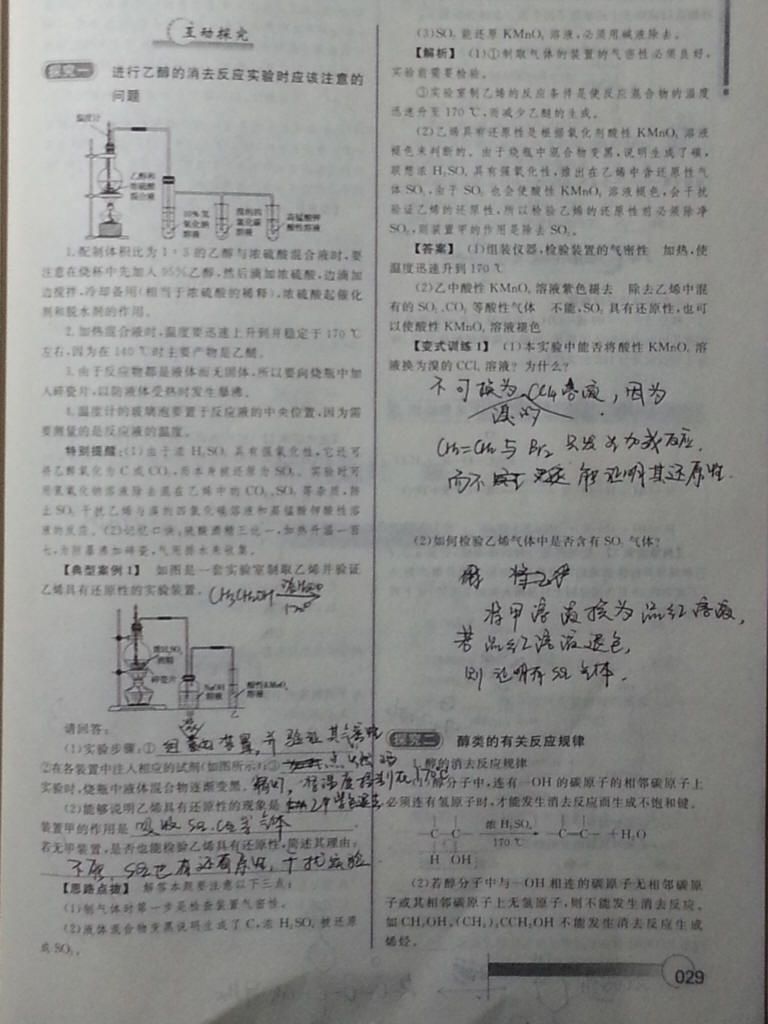 互动探究
探究一 进行乙醇的消去反应实验时应该注意的
问题
温度计
乙醇和
浓硫酸
混合液
10%氢
氧化钠
溶液
溴的四
氯化碳
溶液
高锰酸钾
酸性溶液
1.配制体积比为1∶3的乙醇与浓硫酸混合液时,要
注意在烧杯中先加入95%乙醇,然后滴加浓硫酸,边滴加
边搅拌,冷却备用(相当于浓硫酸的稀释),浓硫酸起催化
剂和脱水剂的作用。
2.加热混合液时,温度要迅速上升到并稳定于170 ℃
左右,因为在140 ℃时主要产物是乙醚。
3.由于反应物都是液体而无固体,所以要向烧瓶中加
入碎瓷片,以防液体受热时发生暴沸。
4.温度计的玻璃泡要置于反应液的中央位置,因为需
要测量的是反应液的温度。
特别提醒:(1)由于浓H₂SO₄具有强氧化性,它还可
将乙醇氧化为C或CO₂,而本身被还原为SO₂。实验时可
用氢氧化钠溶液除去混在乙烯中的CO₂、SO₂等杂质,防
止SO₂干扰乙烯与溴的四氯化碳溶液和高锰酸钾酸性溶
液的反应。(2)记忆口诀:硫酸酒精三比一,加热升温一百
七,为防暴沸加碎瓷,气用排水来收集。
【典型案例1】 如图是一套实验室制取乙烯并验证
乙烯具有还原性的实验装置。
CH3CH2OH 浓H2SO4 170°
浓H₂SO₄
酒精
碎瓷片
NaOH
溶液
酸性KMnO₄
溶液
请回答:
(1)实验步骤:① 组装装置,并验证其气密性
②在各装置中注入相应的试剂(如图所示);③ 点燃酒精
实验时,烧瓶中液体混合物逐渐变黑。 将温度控制在170℃
(2)能够说明乙烯具有还原性的现象是 乙中紫色退去
装置甲的作用是 吸收SO2、CO2等气体
若无甲装置,是否也能检验乙烯具有还原性,简述其理由:
不原,SO2也有还有原性,干扰实验
【思路点拨】 解答本题要注意以下三点:
(1)制气体时第一步是检查装置气密性。
(2)液体混合物变黑说明生成了C,浓H₂SO₄被还原
成SO₂。
(3)SO₂能还原KMnO₄溶液,必须用碱液除去。
【解析】 (1)①制取气体的装置的气密性必须良好,
实验前需要检验。
③实验室制乙烯的反应条件是使反应混合物的温度
迅速升至170 ℃,而减少乙醚的生成。
(2)乙烯具有还原性是根据氧化剂酸性KMnO₄溶液
褪色来判断的。由于烧瓶中混合物变黑,说明生成了碳,
联想浓H₂SO₄具有强氧化性,推出在乙烯中含还原性气
体SO₂,由于SO₂也会使酸性KMnO₄溶液褪色,会干扰
验证乙烯的还原性,所以检验乙烯的还原性前必须除净
SO₂,则装置甲的作用是除去SO₂。
【答案】 (1)组装仪器,检验装置的气密性 加热,使
温度迅速升到170 ℃
(2)乙中酸性KMnO₄溶液紫色褪去 除去乙烯中混
有的SO₂、CO₂等酸性气体 不能,SO₂具有还原性,也可
以使酸性KMnO₄溶液褪色
【变式训练1】 (1)本实验中能否将酸性KMnO₄溶
液换为溴的CCl₄溶液?为什么?
不可换为CCl4溶液,因为
溴的
CH2=CH2与Br2只发生加成反应,
而不能证明其还原性.
(2)如何检验乙烯气体中是否含有SO₂气体?
将甲溶液换为品红溶液,
若品红溶液退色,
则证明有SO2气体.
探究二 醇类的有关反应规律
1.醇的消去反应规律
(1)醇分子中,连有—OH的碳原子的相邻碳原子上
必须连有氢原子时,才能发生消去反应而生成不饱和键。
—C—C— 浓H₂SO₄ 170 ℃ —C=C—+H₂O
H OH
(2)若醇分子中与—OH相连的碳原子无相邻碳原
子或其相邻碳原子上无氢原子,则不能发生消去反应。
如CH₃OH、(CH₃)₃CCH₂OH不能发生消去反应生成
烯烃。
029